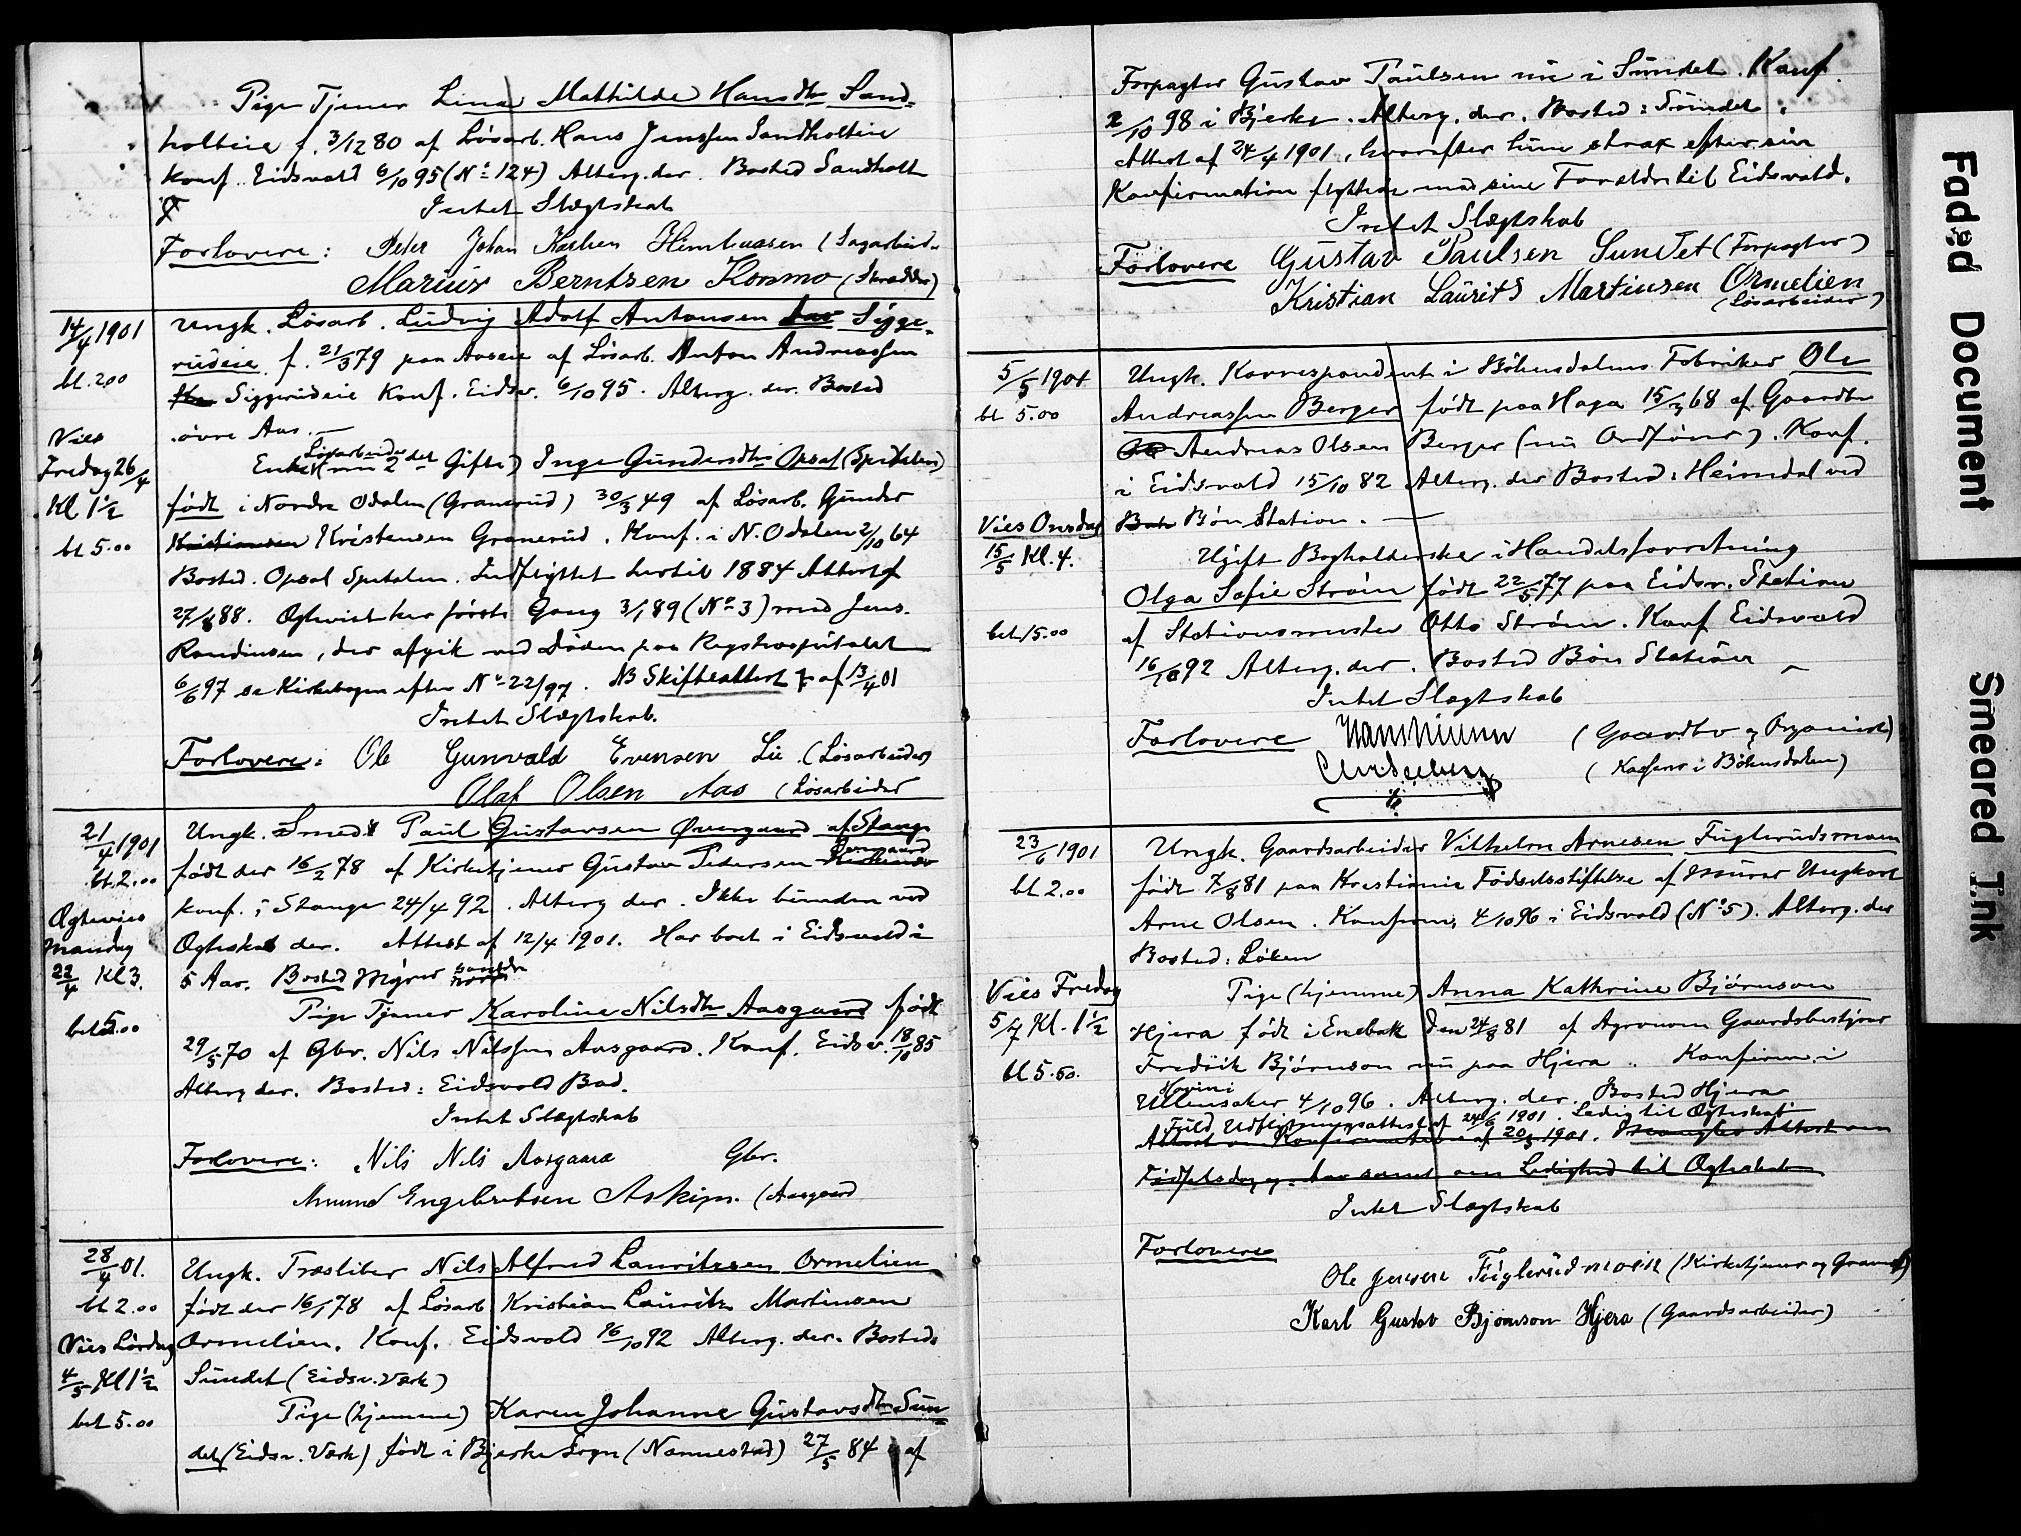 Pige Tjener Lina Mathilde Hansdtr Sand-
holteie f. 3/12 80 af Løsarb. Hans Jenssen Sandholteie
Konf. Eidsvold 6/10 95 (No 124) Alterg. der. Bosted Sandholt
Intet Slægtskab
Forlovere: Peter Johan Karlsen Himhuasen (Sagarbeider
Marius Berntsen Kommo (Skrædder)
14/4 1901
bt. 2.00
Vies
Fredag 26/4
Kl 1½
bt 5.00
Ungk. Løsarb. Ludvig Adolf Antonsen Sigge-
rudeie f. 21/3 79 paa Aaseie af Løsarb. Anton Andreassen
Siggerudeie Konf. Eidsv. 6/10 95. Alterg. der. Bosted
øvre Aas. —
Løsarbeider
Enke (nu 2det Gifte) Inge Gundersdtr Opsal (Spitalen)
født i Nordre Odalen (Granerud) 30/3 49 af Løsarb. Gunder
Kristiansen Kristensen Granerud. Konf. i N. Odalen 2/10 64
Bosted. Opsal Spitalen. Indflyttet hertil 1884 Attest af
27/ 88. Ægteviet her første Gang 3/1 89 (No 3) med Jens
Randinsen, der afgik ved Døden paa Rigshospitalet
6/6 97 se Kirkebogen efter No 22/97. NB Skifteattest af 13/4 01
Intet Slægtskab.
Forlovere: Ole Gunvald Evensen Lie (Løsarbeider)
Olaf Olsen Aas (Løsarbeider
21/4 1901
bt. 2.00
Ægtevies
Mandag
22/4 Kl 3.
bet 5.00
Ungk. Smed Paul Gustavsen Øvergaard af Stange
født der 16/2 78 af Kirketjener Gustav Pedersen
Konf. i Stange 24/4 92. Alterg der. Ikke bunden ved
Ægteskab der. Attest af 12/4 1901. Har boet i Eidsvold i
5 Aar. Bosted Myrer søndre
Pige Tjener Karoline Nilsdtr Aasgaard født
29/5 70 af Gbr. Nils Nilssen Aasgaard. Konf. Eidsv. 18/10 85
Alterg der. Bosted: Eidsvold Bad.
Intet Slægtskab
Forlovere: Nils Nils Aasgaard Gbr.
Amund Engebretsen Askim. (Aasgaard
28/4 01.
bt 2.00
Vies Lørdag
4/5 Kl 1½
bet 5.00
Ungk. Træsliber Nils Alfred Lauritzsen Ormelien
født der 16/1 78 af Løsarb Kristian Lauritz Martinsen
Ormelien. Konf. Eidsvold 16/10 92 Alterg. der. Bosted:
Sundet (Eidsv. Værk)
Pige (hjemme) Karen Johanne Gustavsdtr Sun-
det (Eidsv. Værk) født i Bjerke Sogn (Nannestad) 27/5 84 af
Forpagter Gustav Paulsen nu i Sundet. Konf.
2/10 98 i Bjerke. Alterg. der. Bosted: Sundet.
Attest af 24/4 1901, hvorefter hun strax efter sin
Konfirmation flyttede med sine Forældre til Eidsvold.
Intet Slægtskab
Forlovere Gustav Paulsen Sundet (Forpagter)
Kristian Laurits Martinsen Ormelien
(Løsarbeider)
5/5 1901
bt 5.00
Vies Onsdag
15/5 Kl. 4.
bet 15.00
Ungk. Korrespondent i Bøhnsdalens Fabriker Ole
Andreassen Berger født paa Haga 15/3 68 af Gaardbr
Andreas Olsen Berger (nu Ordfører). Konf.
i Eidsvold 15/10 82 Alterg. der Bosted: Heimdal ved
Bøn Station. —
Ugift Bogholderske i Handelsforretning
Olga Sofie Strøm født 22/5 77 paa Eidsv. Station
af Stationsmester Otto Strøm. Konf Eidsvold
16/10 92 Alterg. der. Bosted Bøn Station
Intet Slægtskab
Forlovere (Gaardbr og Organist)
(Kasserer i Bøhnsdalen)
23/6 1901
bt 2.00
Vies Fredag
5/7 Kl. 1½
bt 5.50.
Ungk. Gaardsarbeider Vilhelm Arnesen Fuglerudsmoen
født 7/8 81 paa Kristiania Fødselsstiftelse af Murer Ungkarl
Arne Olsen. Konfirm. 4/10 96 i Eidsvold (No 5). Alterg. der
Bosted: Løken
Pige (hjemme) Anna Kathrine Bjørnson
Hjera født i Enebak den 24/8 81 af Agronom Gaardsbestyrer
Fredrik Bjørnson nu paa Hjera. Konfirm. i
Hovin i
Ullensaker 4/10 96. Alterg. der. Bosted Hjera
Fuld Udflytningsattest af 24/6 1901. Ledig til Ægteskab
Attest om Konfirmation af 20/5 1901. Mangler Attest om
Fødselsdag og Ledighed til Ægteskab
Intet Slægtskab
Forlovere
Ole Jensen Fuglerudmoen (Kirketjener og Graver)
Karl Gustav Bjørnson Hjera (Gaardsarbeider)
Faded Document
Smeared Ink